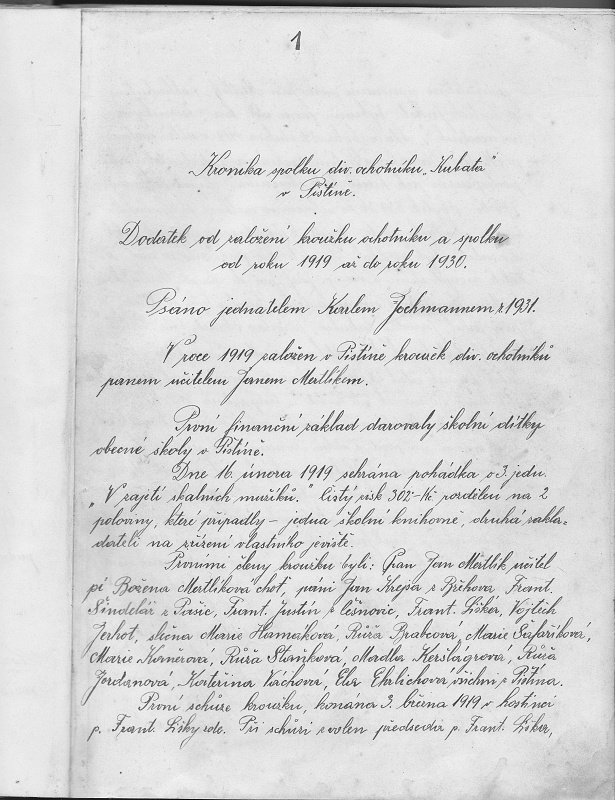 1
Kronika spolku div. ochotníku „Kubata"
v Pištíně.
Dodatek od založení kroužku ochotníku a spolku
od roku 1919 až do roku 1930.
Psáno jednatelem Karlem Jochmannem r. 1931.
V roce 1919 založen v Pištíně kroužek div. ochotníků
panem učitelem Janem Mertlíkem.
První finanční základ darovaly školní dítky
obecné školy v Pištíně.
Dne 16. února 1919 sehrána pohádka o 3. jedn.
„V zajetí skalních mužíků." Čistý zisk 302 - Kč rozdělen na 2
poloviny, které připadly - jedna školní knihovně, druhá zakla-
dateli na zřízení vlastního jeviště.
Prvními členy kroužku byli: Pan Jan Mertlík učitel
pí Božena Mertlíková choť, páni Jan Krejsa z Břehova, Frant.
Šindelář z Pašic, Frant. Justin z Češnovic, Frant. Liška, Vojtěch
Jerhot, slečna Marie Hamerková, Růža Brabcova, Marie Šafaříková,
Marie Korčerová, Růža Staňková, Madla Kerslágrová, Růža
Jordanová, Kateřina Váchová, Ela Ehrlichova všichni z Pištína.
První schůze kroužku, konana 3. března 1919 v hostinci
p. Frant. Lišky zde. Při schůzi zvolen předseda p. Frant. Liška,